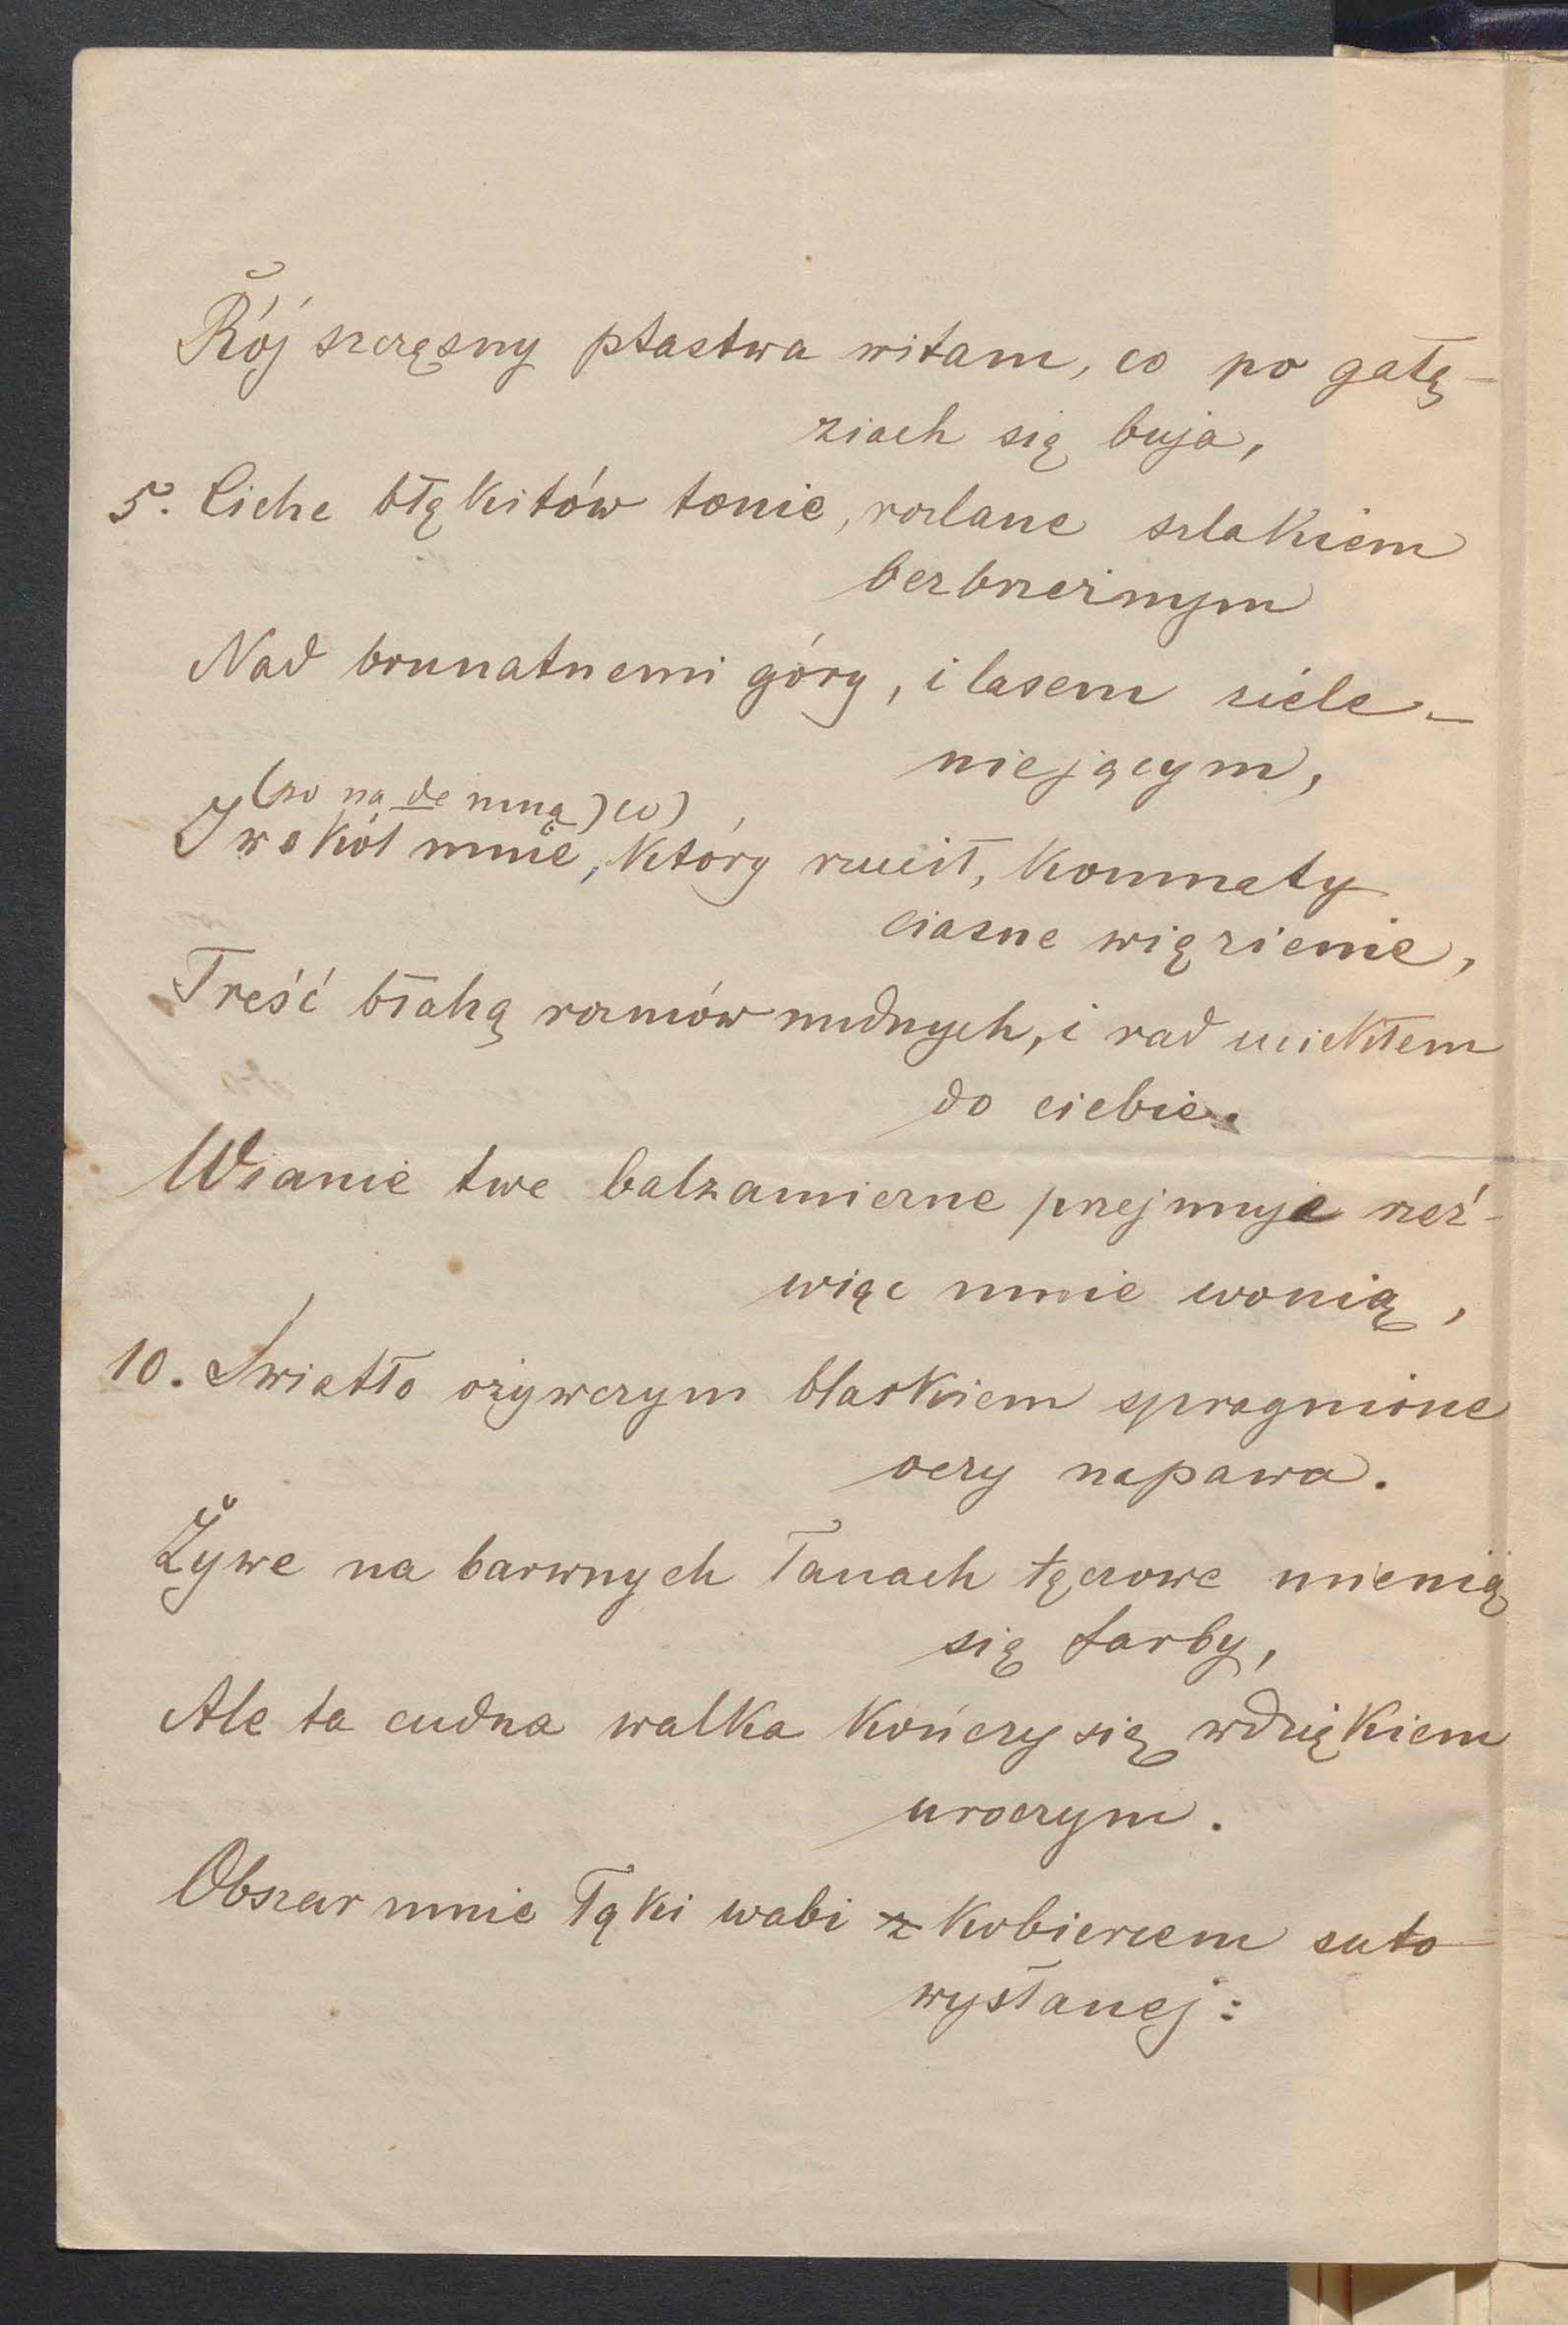 Rój szczęsny ptastwa witam, co po gałę-
ziach się buja,
5. Ciche błękitów tonie, rozlane szlakiem
bezbrzeżnym
Nad brunatnemi góry, i lasem ziele-
niejącym,
na de mną) co)
I wokół mnie, który rzucił, komnaty
ciasne więzienie,
Treść błahą rozmów nudnych, i rad uciekłem
do ciebie.
Wianie twe balzamiczne przejmuje rzeź-
wiąc mnie wonią,
10. Światło ożywczym blaskiem spragnione
oczy napawa.
Żywe na barwnych łanach tęczowe mienią
się farby,
Ale ta cudna walka kończy się wdziękiem
uroczym.
Obszar mnie łąki wabi z kobiercem suto
wysłanej: